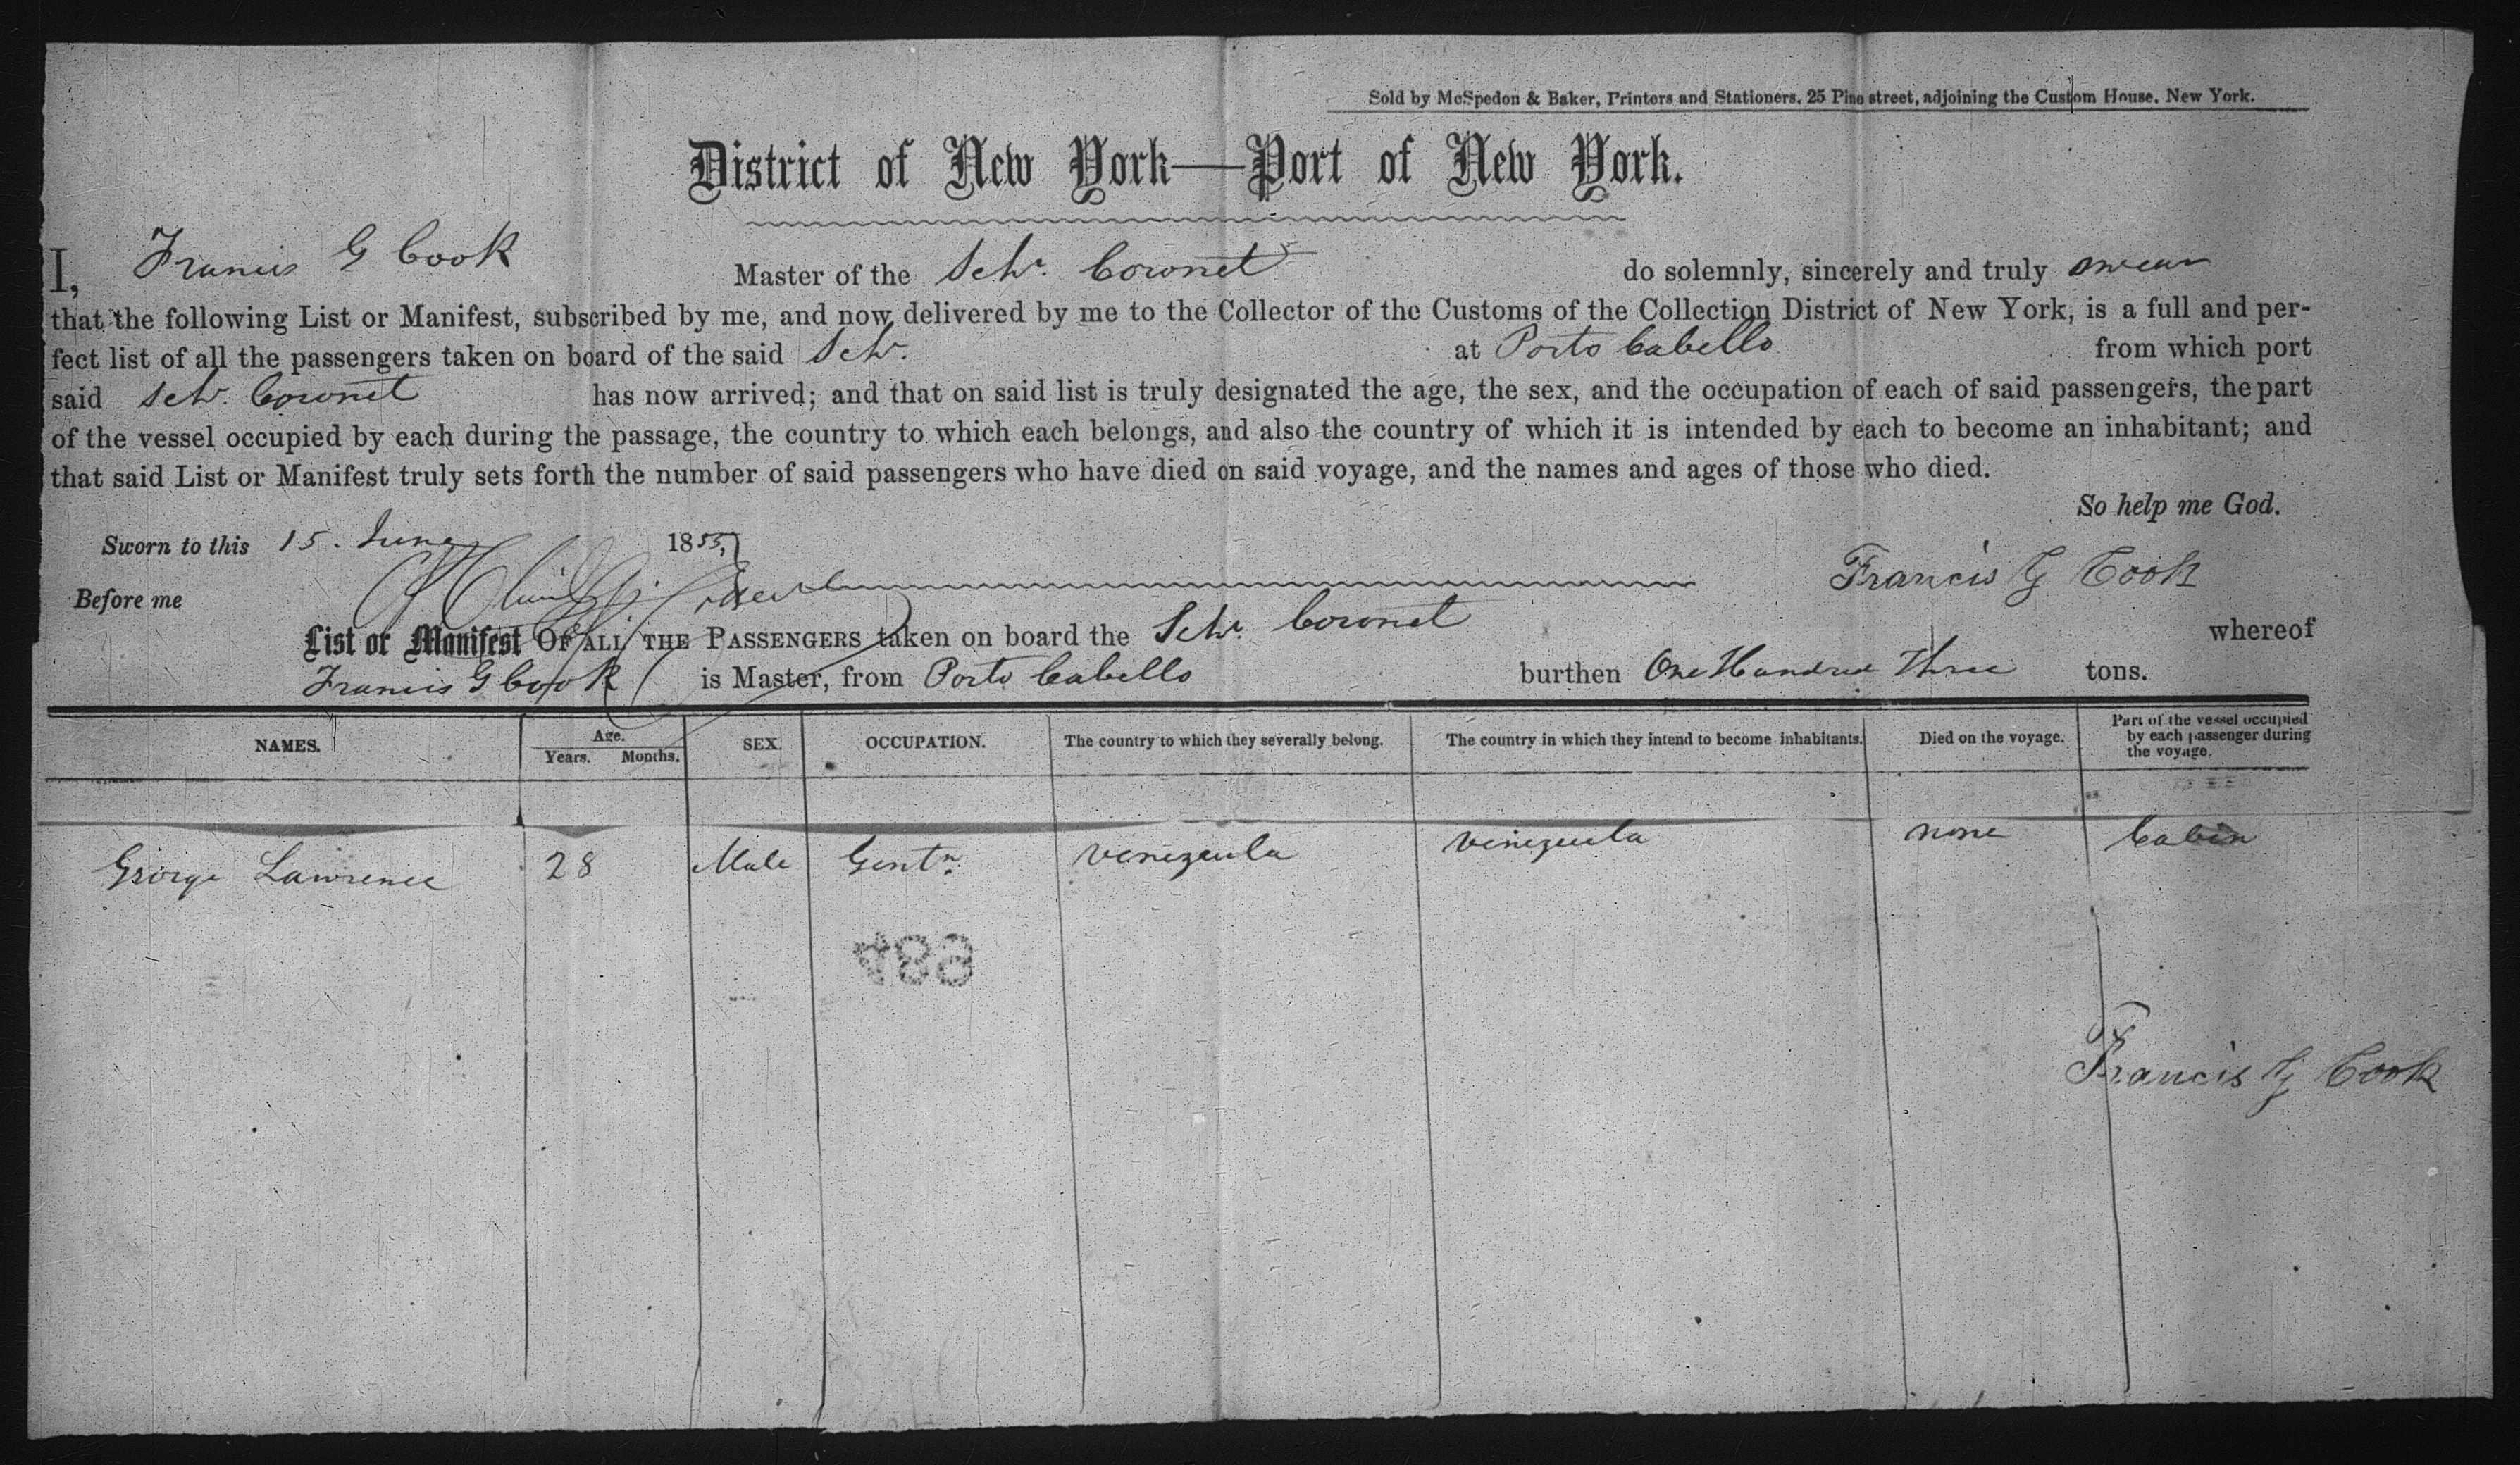 Sold by McSpedon & Baker, Printers and Stationers, 25 Pine street, adjoining the Custom House, New York.
District of New York—Port of New York.
I, Francis G Cook Master of the Schr. Coronet do solemnly, sincerely and truly swear
that the following List or Manifest, subscribed by me, and now delivered by me to the Collector of the Customs of the Collection District of New York, is a full and per-
fect list of all the passengers taken on board of the said Schr. at Porto Cabello from which port
said Schr. Coronet has now arrived; and that on said list is truly designated the age, the sex, and the occupation of each of said passengers, the part
of the vessel occupied by each during the passage, the country to which each belongs, and also the country of which it is intended by each to become an inhabitant; and
that said List or Manifest truly sets forth the number of said passengers who have died on said voyage, and the names and ages of those who died.
So help me God.
Sworn to this 15. June 1855,
Before me Francis G Cook
List or Manifest OF ALL THE PASSENGERS taken on board the Schr. Coronet whereof
Francis G Cook is Master, from Porto Cabello burthen One Hundred Three tons.
NAMES. Age. Years. Months. SEX. OCCUPATION. The country to which they severally belong. The country in which they intend to become inhabitants. Died on the voyage. Part of the vessel occupied by each passenger during the voyage.
George Lawrence 28 Male Gentn. Venezeula Venezeula none Cabin
Francis G Cook